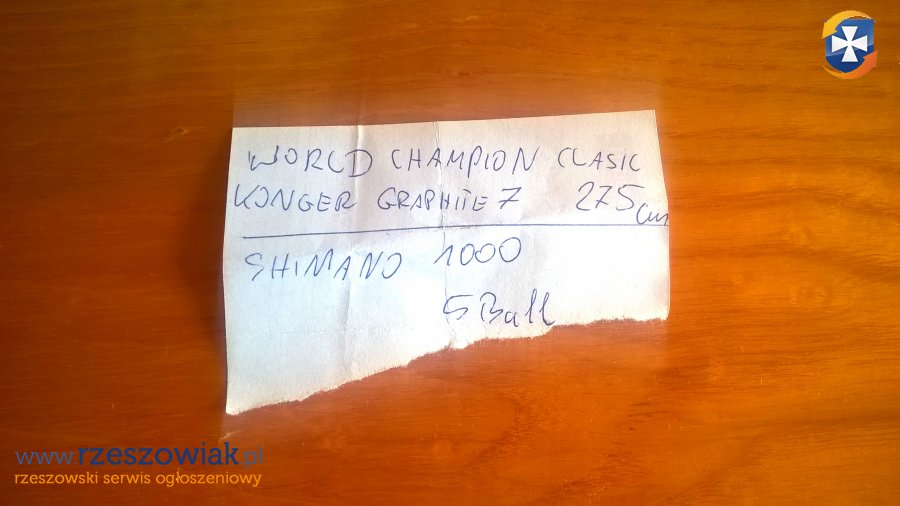 WORLD CHAMPION CLASIC
KONGER GRAPHITE 7 275 cm
SHIMANO 1000
5 Ball
www.rzeszowiak.pl
rzeszowski serwis ogłoszeniowy